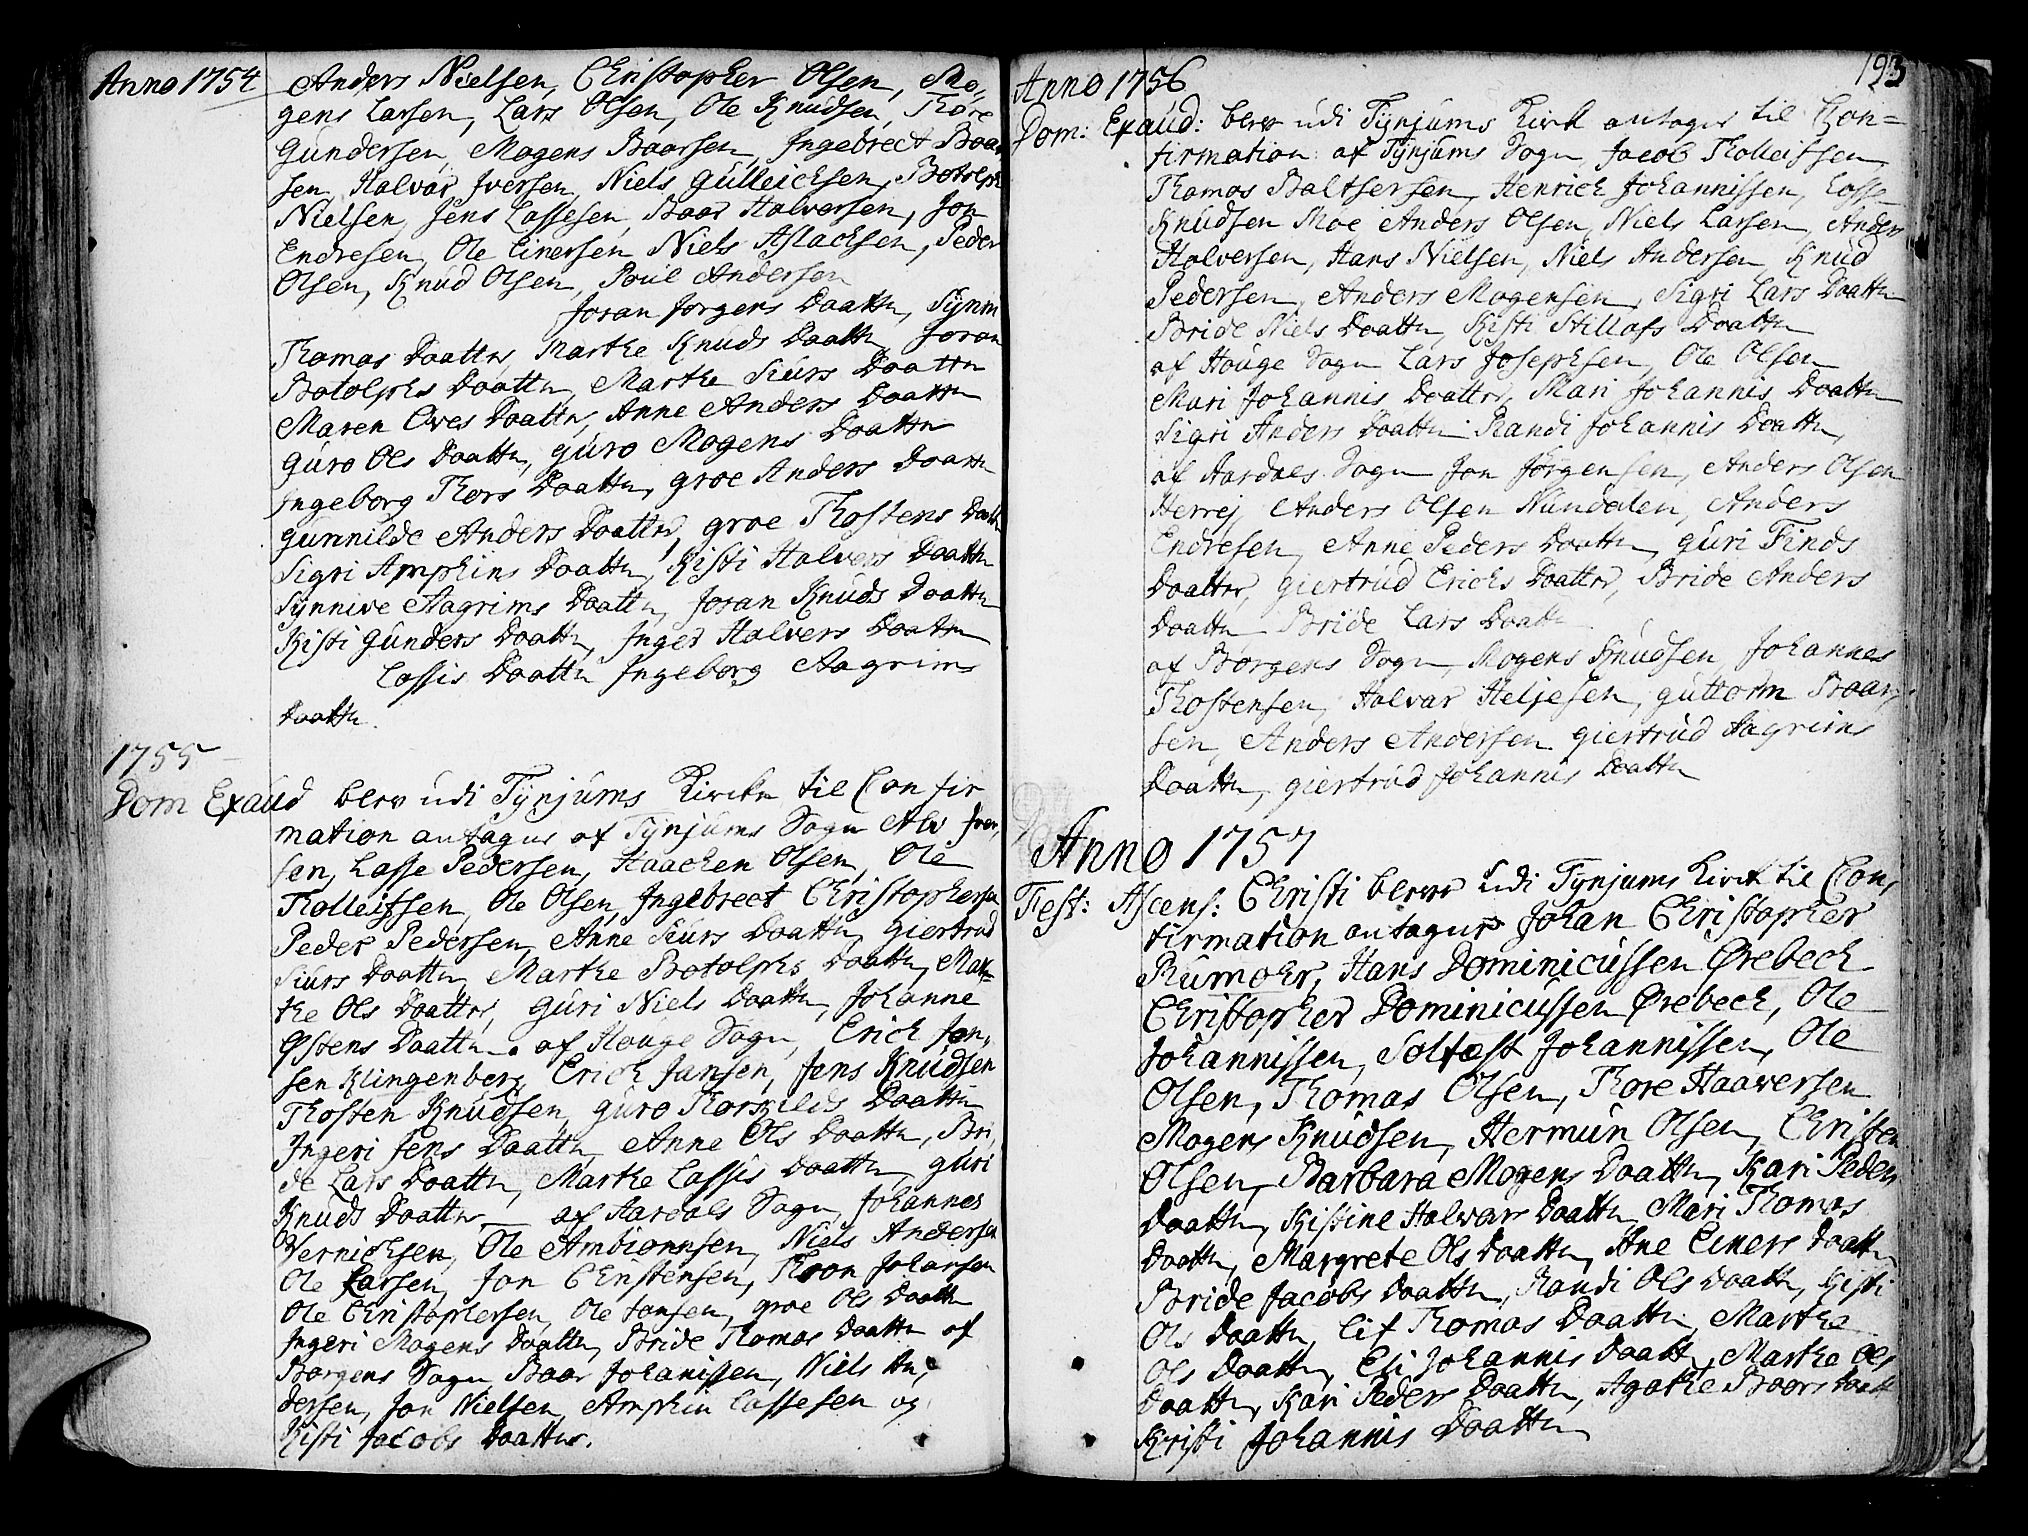 Anno 1754
Anders Nielsen, Christopher Olsen, Mo,
gens Larsen, Lars Olsen, Ole Knudsen, Thore
Gundersen, Mogens Baarsen, Ingebrect Baar
sen, Halvar Iversen, Niels Gulleichsen, Botolph
Nielsen, Jens Lassesen, Baar Halversen, Jon
Endresen, Ole Einersen, Niels Aslachsen, Peder
Olsen, Knud Olsen, Poul Andersen
Joran Jorgens Daattr, Synni
Thomas Daatter, Marthe Knuds Daattr, Joran
Botolphs Daattr, Marthe Siurs Daattr
Maren Oves Daattr, Anne Anders Daattr
Guro Ols Daattr, Guro Mogens Daattr
Ingeborg Thors Daattr, Groe Anders Daattr
Gunnilde Anders Daatter, Groe Thostens Daattr
Sigri Amphins Daattr, Kisti Halvers Daattr
Synnive Aagrims Daattr, Joran Knuds Daattr
Kisti Gunders Daattr, Inger Halvers Daattr
Lassis Daattr Ingeborg Aagrims
Daattr.
1755
Dom Exaud blev udi Tynjums Kircke til Confir
mation antagne af Tynjums Sogn Ale Iver,
sen, Lasse Pedersen, Haachen Olsen, Ole
Tholleifsen, Ole Olsen, Ingebrect Christophersen
Peder Pedersen, Anne Siurs Daattr, Giertrud
Siurs Daattr, Marthe Botolphs Daattr, Mar-
the Ols Daatter, Guri Niels Daattr, Johanne
Østens Daattr. af Houge Sogn, Erich Jon,
sen Klingenberg, Erich Jansen, Jens Knudsen
Thosten Knudsen, Guro Thorkilds Daattr
Ingeri Jens Daattr, Anne Ols Daattr, Bri,
de Lars Daattr, Marthe Lassis Daattr, Guri
Knuds Daatter af Aardals Sogn, Johannes
Vernichsen, Ole Ambiørnsen, Niels Andersen
Ole Larsen, Jon Christensen, Thron Johansen
Ole Christophersen, Ole Jonsen, Groe Ols Daattr
Ingeri Mogens Daattr, Bride Thomas Daattr af
Borgens Sogn Baar Johanissen, Niels An,
dersen, Jon Nielsen, Amphin Lassesen og
Kisti Jacobs Daatter.
193
Anno 1756
Dom: Exaud: blev udi Tynjums Kirck antagne til Con=
firmation af Tynjums Sogn, Jacob Tholleifsen
Thomas Baltsersen, Henrich Johannissen, Lasse
Knudsen Moe Anders Olsen, Niels Larsen, Anders
Halversen, Hans Nielsen, Niels Andersen, Knud
Pedersen, Anders Mogensen, Sigri Lars Daattr
Bride Niels Daattr, Kisti Stillafs Daattr
af Houge Sogn Lars Josephsen, Ole Olsen
Mari Johannis Daatter, Mari Johannis Daattr
Sigri Anders Daattr Randi Johannis Daattr,
af Aardals Sogn Jon Jorgensen, Anders Olsen
Herrej, Anders Olsen Nundalen, Anders
Endresen, Anne Peders Daattr, Guri Finds
Daatter, Giertrud Erichs Daatter, Bride Anders
Daattr Bride Lars Daattr
af Borgens Sogn, Mogens Knudsen, Johannes
Thostensen, Halvar Heljesen, Guttorm Baar,
sen, Anders Andersen Giertrud Aagrims
Daattr, Giertrud Johannis Daattr
Anno 1757
Fest: Ascens: Christi blev udi Tynjums Kirck til Con,
firmation antagne Johan Christopher
Rumohr, Hans Dominicussen Ørebech
Christopher Dominicussen Ørebech, Ole
Johannissen, Solfest Johannissen, Ole
Olsen, Thomas Olsen, Thore Haaversen
Mogens Knudsen, Hermun Olsen, Christen
Olsen, Barbara Mogens Daattr, Kari Peders
Daattr, Kistine Halvars Daattr, Mari Thomas
Daattr, Margrete Ols Daattr, Ane Einers Daattr
Bride Jacobs Daattr, Randi Ols Daattr, Kisti
Ols Daattr, Lif Thomas Daattr, Marthe
Ols Daattr, Eli Johannis Daattr, Marthe Ols
Daattr, Kari Peders Daattr, Agathe Baars Daattr
Kristi Johannis Daattr